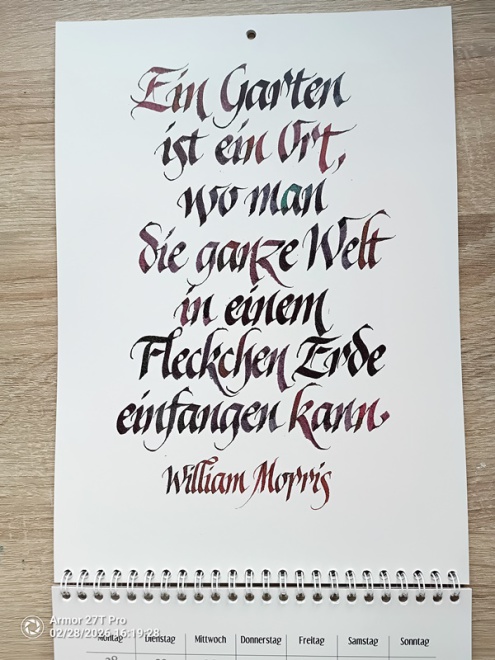 Ein Garten
ist ein Ort,
wo man
die ganze Welt
in einem
Fleckchen Erde
einfangen kann.
William Morris
Armor 27T Pro
02/28/2025 15:19:28
Montag Dienstag Mittwoch Donnerstag Freitag Samstag Sonntag